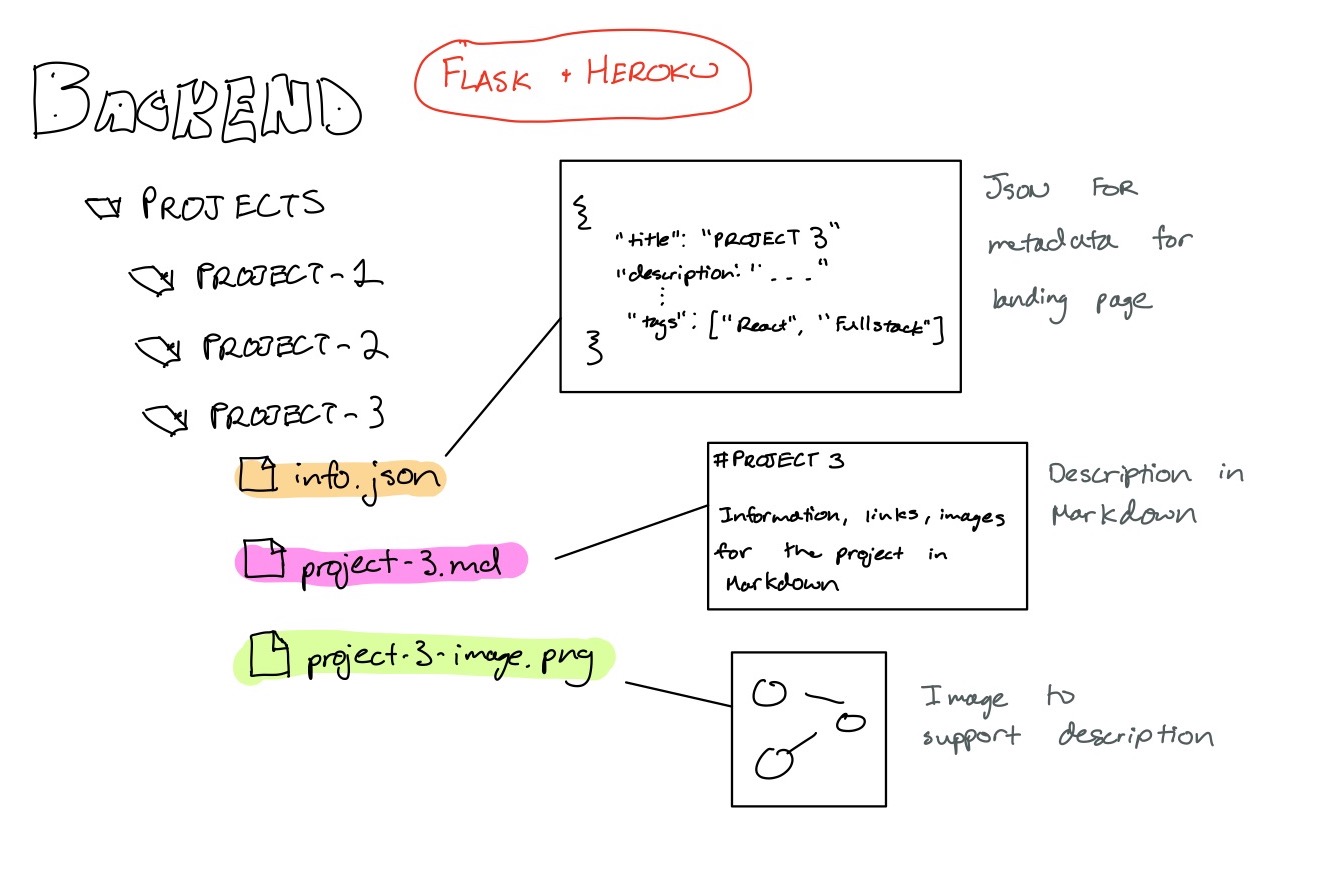 BACKEND
FLASK + HEROKU
PROJECTS
PROJECT-1
PROJECT-2
PROJECT-3
info.json
project-3.md
project-3-image.png
{
"title": "PROJECT 3"
"description: " . . . "
⋮
"tags": ["React", "Fullstack"]
}
Json FOR
metadata for
landing page
#PROJECT 3
Information, links, images
for the project in
Markdown
Description in
Markdown
Image to
support description